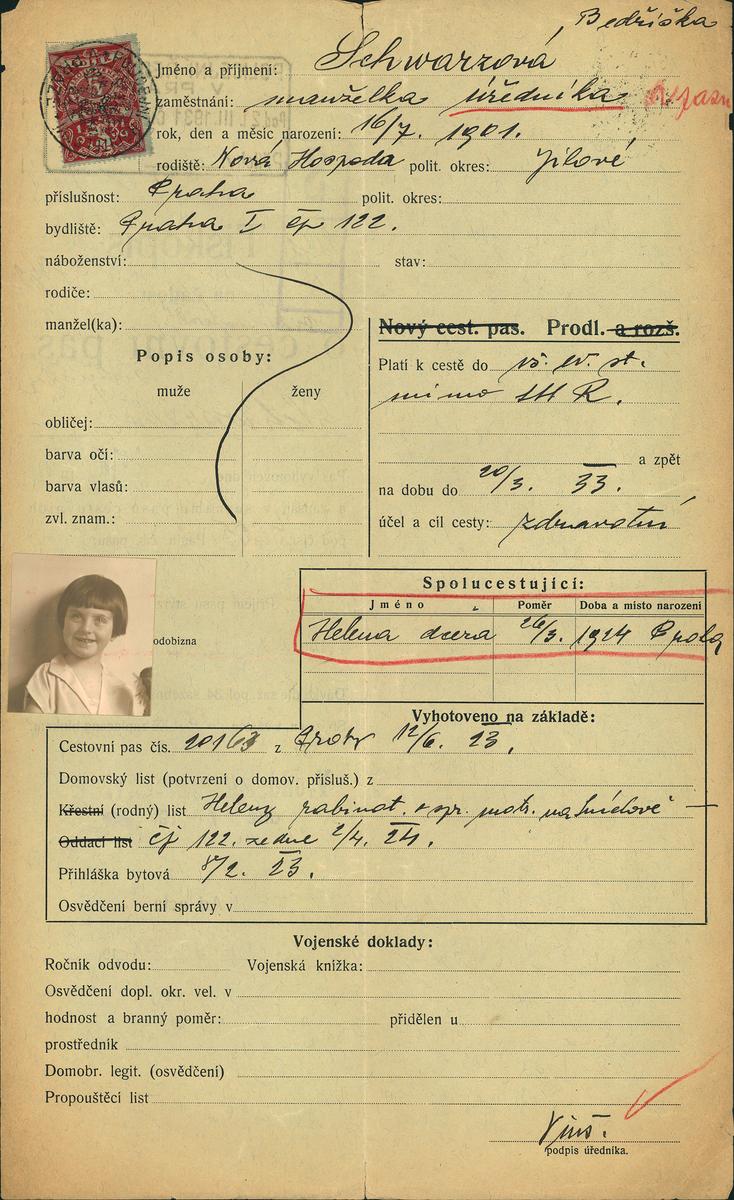 Bedřiška
Jméno a příjmení: Schwarzová
zaměstnání: manželka úředníka
rok, den a měsíc narození: 16/7. 1901.
rodiště: Nová Hospoda polit. okres: Jílové
příslušnost: Praha polit. okres:
bydliště: Praha I čp 122.
náboženství: stav:
rodiče:
manžel(ka):
Nový cest. pas. Prodl. a rozš.
Popis osoby:
Platí k cestě do vš. ev. st.
muže ženy
mimo SSSR.
obličej:
barva očí:
a zpět
barva vlasů:
na dobu do 20/3. 33.
zvl. znam.:
účel a cíl cesty: zdravotní
Spolucestující:
Jméno Poměr Doba a místo narození
Helena dcera 26/3. 1924 Praha
odobizna
Vyhotoveno na základě:
Cestovní pas čís. 20163 z Prahy 12/6. 23.
Domovský list (potvrzení o domov. přísluš.) z
Křestní (rodný) list Heleny rabinát. spr. matr. na
Oddací list čj 122. ze dne 2/4. 24.
Přihláška bytová 8/2. 23.
Osvědčení berní správy v
Vojenské doklady:
Ročník odvodu: Vojenská knížka:
Osvědčení dopl. okr. vel. v
hodnost a branný poměr: přidělen u
prostředník
Domobr. legit. (osvědčení)
Propouštěcí list
podpis úředníka.